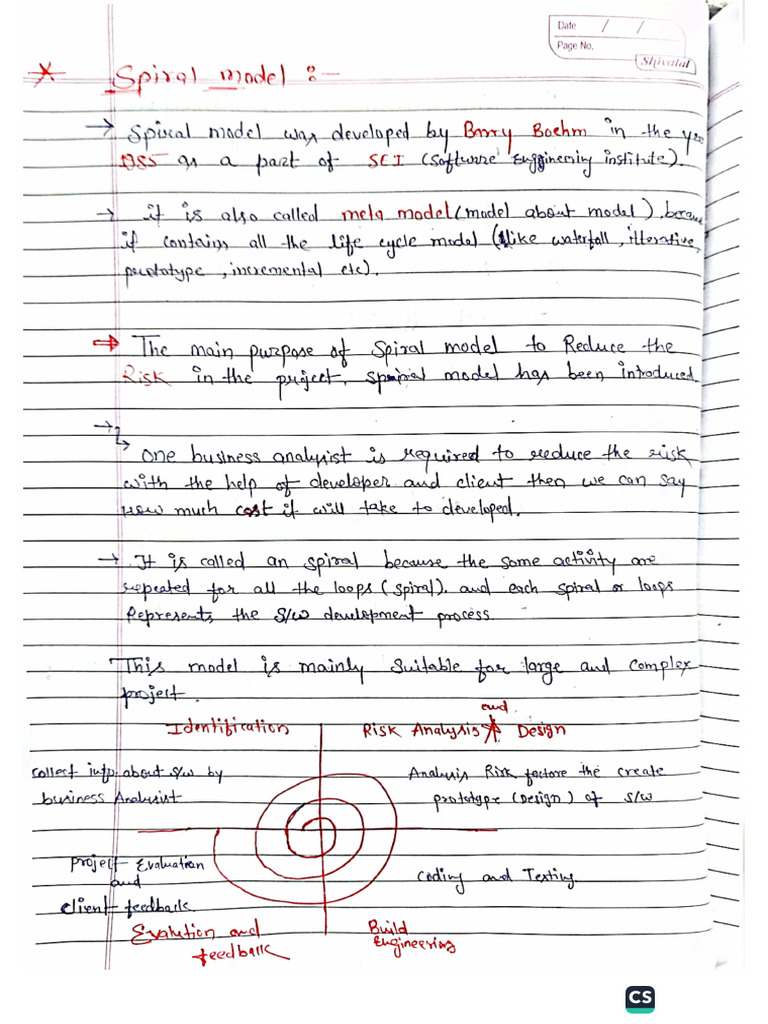 Date / /
Page No.
Shivalal
* Spiral model :-
→ Spiral model was developed by Barry Boehm in the
1985 as a part of SEI (Software Engginering institute).
→ it is also called meta model (model about model),
if contains all the life cycle model (like waterfall, itterative,
prototype, incremental etc).
⇒ The main purpose of spiral model to Reduce the
Risk in the project, spiral model has been introduced.
→
↳ One business analyist is required to reduce the risk
with the help of developer and client then we can say
How much cost it will take to developed.
→ It is called an spiral because the same activity are
repeated for all the loops (spiral). and each spiral or loops
Represents the S/W development process.
This model is mainly suitable for large and complex
project.
Identification
Risk Analysis and Design
collect info about S/W by
business Analysist
Analysis Risk factore the create
prototype (Design) of S/W
Project Evaluation
and
client feedback.
Coding and Testing.
Evalution and
feedback
Build
Engineering
CS